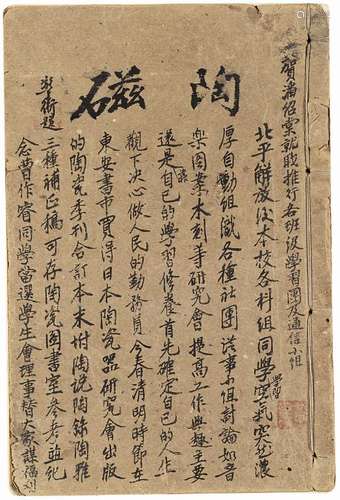 賀滿紹棠就職推行各班級學習團及通信小組
陶磁
北平解放後本校各科組同學學習空氣突然濃
厚自動組織各種社團從事小組討論如音
樂圖案木刻等研究會提高工作興趣主要
還是自己的學習修養首先確定自己的人生
觀下決心做人民的勤務員今春清明時節在
東安書市買得日本陶瓷器研究會出版
的陶瓷季刊合訂本末附陶說陶錄陶雅
三種補正稿可存陶瓷圖書室參考
念曹作睿同學當選學生會理事替大眾謀福利